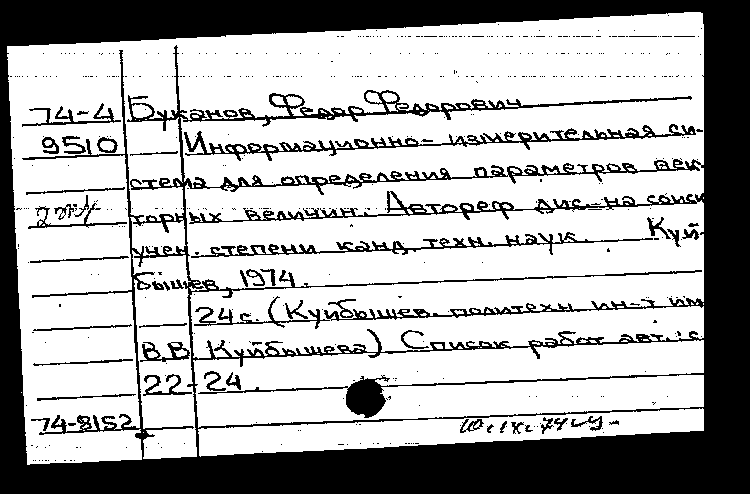 74-4 Буканов, Федор Федорович
9510 Информационно-измерительная си-
стема для определения параметров век-
торных величин. Автореф. дис. на соиск
учен. степени канд. техн. наук. Куй-
бышев, 1974.
24 с. (Куйбышев. политехн. ин-т им
В.В. Куйбышева). Список работ авт.: с
22-24.
74-8152